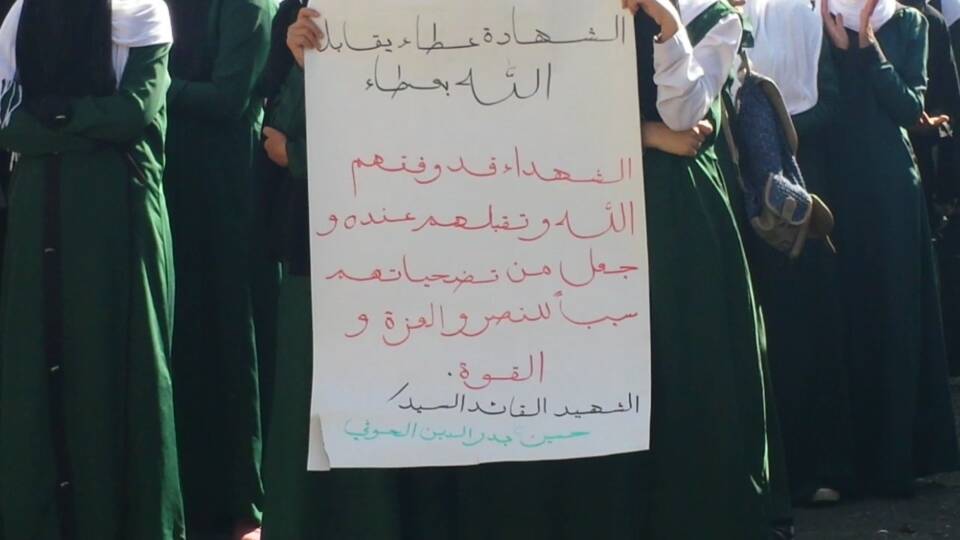 الشهادة عطاء يقابل
الله بعطاء
الشهداء قد وفقهم
الله وتقبلهم عنده و
جعل من تضحياتهم
سبباً للنصر والعزة و
القوة.
الشهيد القائد السيد/
حسين بدر الدين الحوثي